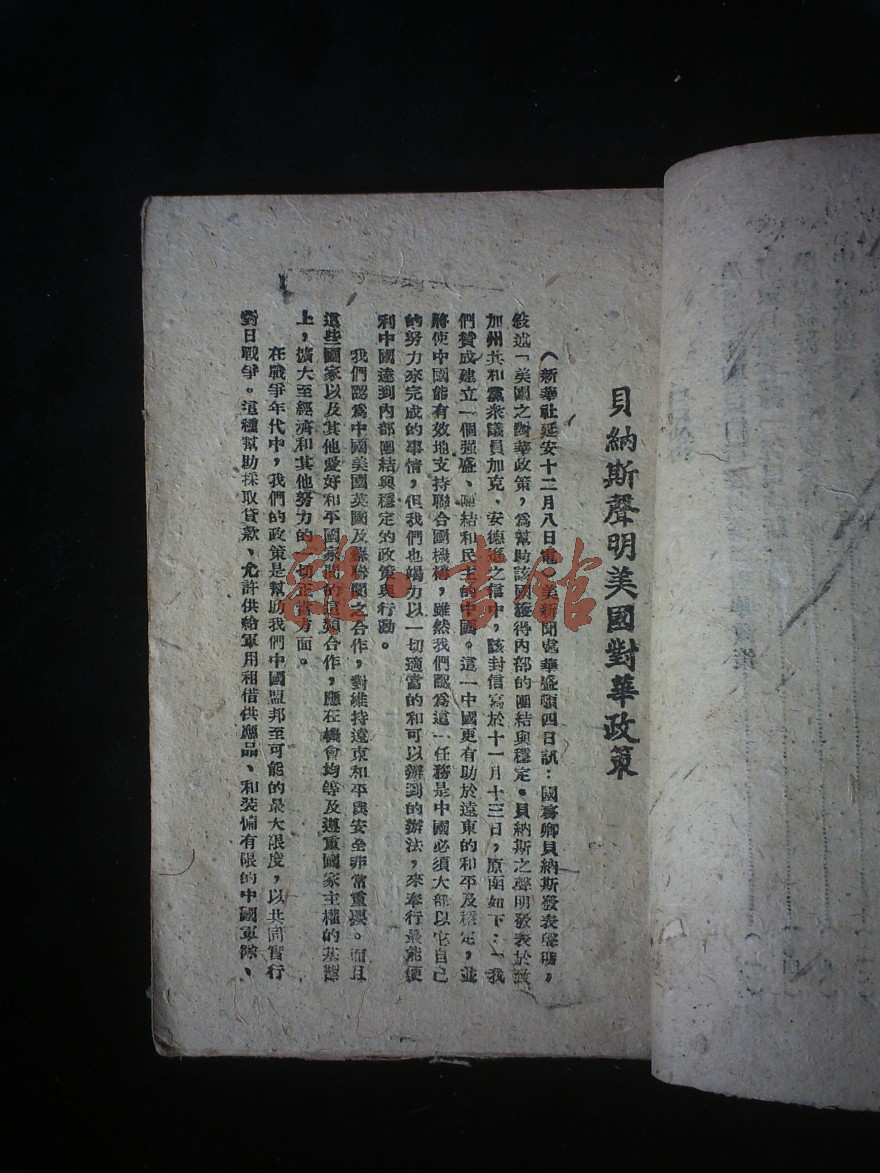 貝納斯聲明美國對華政策
（新華社延安十二月八日電）美新聞處華盛頓四日訊：國務卿貝納斯發表聲明，
敍述「美國之對華政策，爲幫助該國獲得內部的團結與穩定。貝納斯之聲明發表於致
加州共和黨衆議員加克、安德遜之信中，該封信寫於十一月十三日，原函如下：「我
們贊成建立一個強盛、團結和民主的中國。這一中國更有助於遠東的和平及穩定，並
將使中國能有效地支持聯合國機構，雖然我們認爲這一任務是中國必須大部以它自己
的努力來完成的事情，但我們也竭力以一切適當的和可以辦到的辦法，來奉行最能便
利中國達到內部團結與穩定的政策與行動。
我們認爲中國美國英國及蘇聯間之合作，對維持遠東和平與安全非常重要。而且
這些國家以及其他愛好和平國家間的這類合作，應在機會均等及遵重國家主權的基礎
上，擴大至經濟和其他努力的一切正當方面。
在戰爭年代中，我們的政策是幫助我們中國盟邦至可能的最大限度，以共同實行
對日戰爭。這種幫助採取貸款、允許供給軍用租借供應品、和裝備有限的中國軍隊、
雜·書館